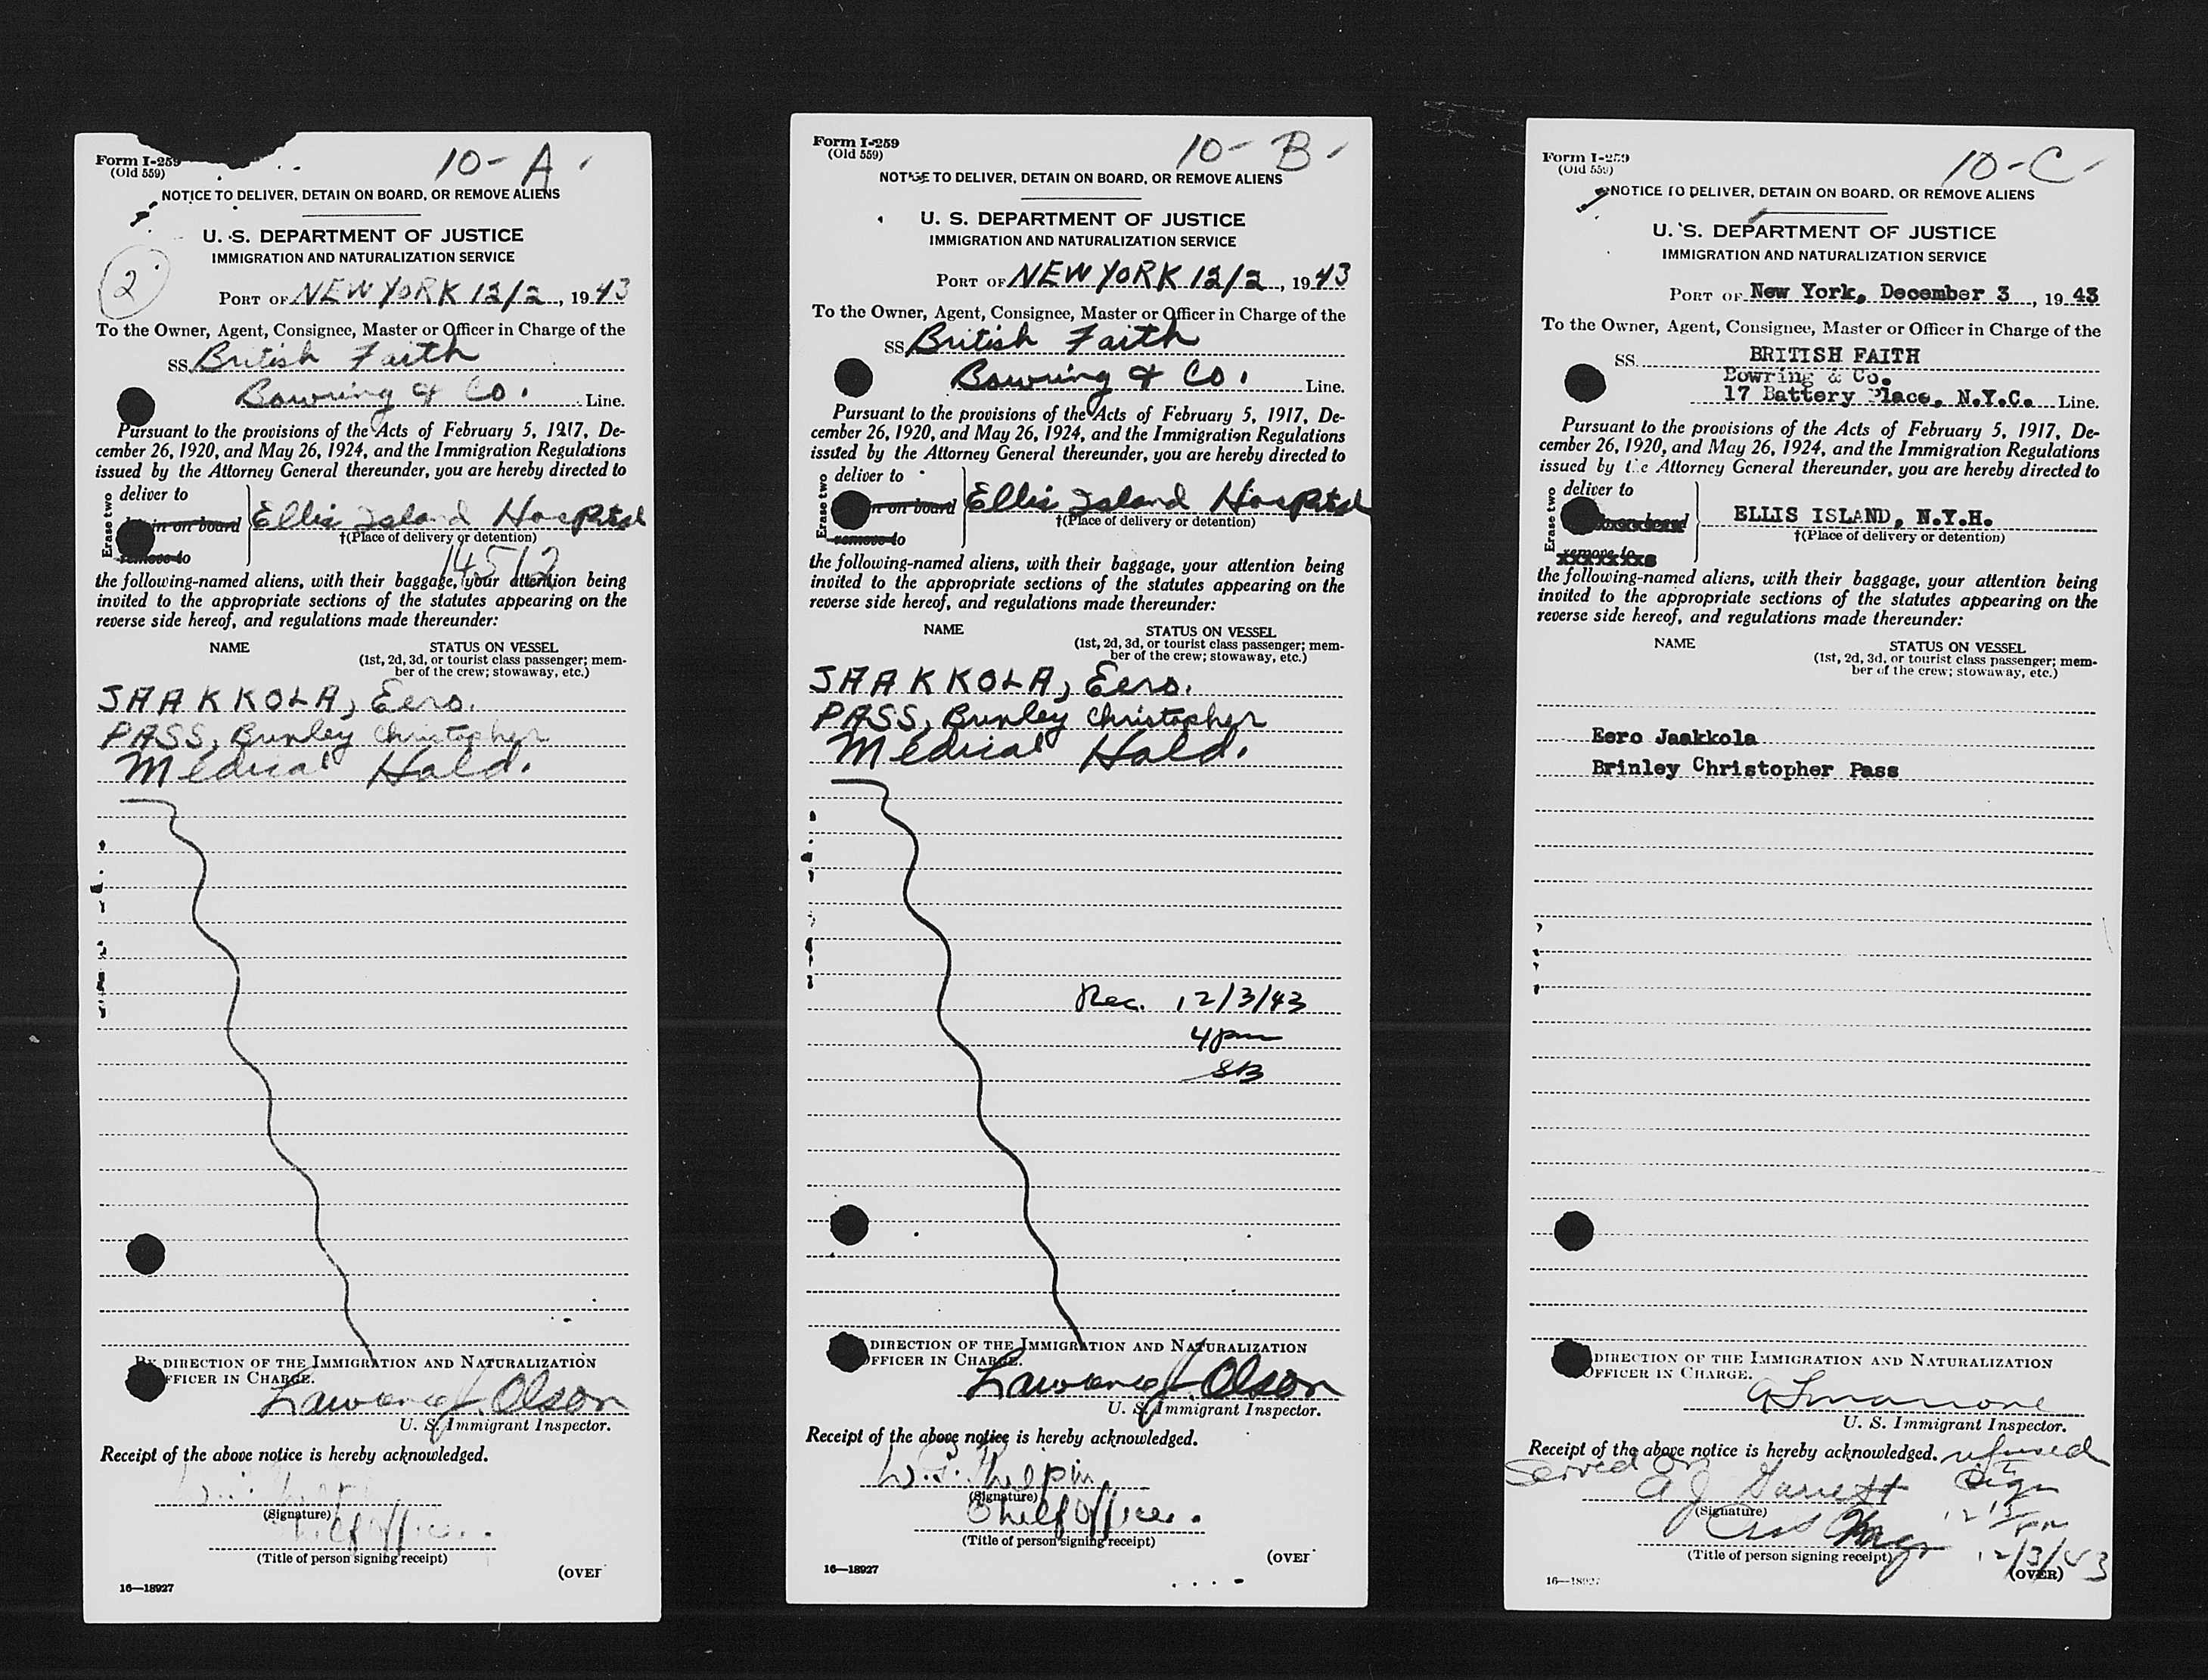 Form I-259
(Old 559)
10-A
NOTICE TO DELIVER, DETAIN ON BOARD, OR REMOVE ALIENS
U. S. DEPARTMENT OF JUSTICE
IMMIGRATION AND NATURALIZATION SERVICE
2
PORT OF NEW YORK 12/2, 1943
To the Owner, Agent, Consignee, Master or Officer in Charge of the
SS British Faith
Bowring & Co. Line.
Pursuant to the provisions of the Acts of February 5, 1917, De-
cember 26, 1920, and May 26, 1924, and the Immigration Regulations
issued by the Attorney General thereunder, you are hereby directed to
Erase two
deliver to
on board
remove to
Ellis Island Hospital
†(Place of delivery or detention)
14512
the following-named aliens, with their baggage, your attention being
invited to the appropriate sections of the statutes appearing on the
reverse side hereof, and regulations made thereunder:
NAME STATUS ON VESSEL
(1st, 2d, 3d, or tourist class passenger; mem-
ber of the crew; stowaway, etc.)
JAAKKOLA, Eero.
PASS, Brinley Christopher
Medical Hold.
BY DIRECTION OF THE IMMIGRATION AND NATURALIZATION
OFFICER IN CHARGE.
Lawrence J. Olson
U. S. Immigrant Inspector.
Receipt of the above notice is hereby acknowledged.
(Signature)
Chief Officer.
(Title of person signing receipt)
(OVER
16—18927
Form I-259
(Old 559)
10-B
NOTICE TO DELIVER, DETAIN ON BOARD, OR REMOVE ALIENS
U. S. DEPARTMENT OF JUSTICE
IMMIGRATION AND NATURALIZATION SERVICE
PORT OF NEW YORK 12/2, 1943
To the Owner, Agent, Consignee, Master or Officer in Charge of the
SS British Faith
Bowring & Co. Line.
Pursuant to the provisions of the Acts of February 5, 1917, De-
cember 26, 1920, and May 26, 1924, and the Immigration Regulations
issued by the Attorney General thereunder, you are hereby directed to
Erase two
deliver to
on board
remove to
Ellis Island Hospital
†(Place of delivery or detention)
the following-named aliens, with their baggage, your attention being
invited to the appropriate sections of the statutes appearing on the
reverse side hereof, and regulations made thereunder:
NAME STATUS ON VESSEL
(1st, 2d, 3d, or tourist class passenger; mem-
ber of the crew; stowaway, etc.)
JAAKKOLA, Eero.
PASS, Brinley Christopher
Medical Hold.
Rec. 12/3/43
4pm
SB
DIRECTION OF THE IMMIGRATION AND NATURALIZATION
OFFICER IN CHARGE.
Lawrence J. Olson
U. S. Immigrant Inspector.
Receipt of the above notice is hereby acknowledged.
(Signature)
Chief Officer.
(Title of person signing receipt)
(OVER
16—18927
Form I-259
(Old 559)
10-C
NOTICE TO DELIVER, DETAIN ON BOARD, OR REMOVE ALIENS
U. S. DEPARTMENT OF JUSTICE
IMMIGRATION AND NATURALIZATION SERVICE
PORT OF New York, December 3, 1943
To the Owner, Agent, Consignee, Master or Officer in Charge of the
SS. BRITISH FAITH
Bowring & Co.
17 Battery Place, N.Y.C. Line.
Pursuant to the provisions of the Acts of February 5, 1917, De-
cember 26, 1920, and May 26, 1924, and the Immigration Regulations
issued by the Attorney General thereunder, you are hereby directed to
Erase two
deliver to
remove to
ELLIS ISLAND, N.Y.H.
†(Place of delivery or detention)
the following-named aliens, with their baggage, your attention being
invited to the appropriate sections of the statutes appearing on the
reverse side hereof, and regulations made thereunder:
NAME STATUS ON VESSEL
(1st, 2d, 3d, or tourist class passenger; mem-
ber of the crew; stowaway, etc.)
Eero Jaakkola
Brinley Christopher Pass
DIRECTION OF THE IMMIGRATION AND NATURALIZATION
OFFICER IN CHARGE.
U. S. Immigrant Inspector.
Receipt of the above notice is hereby acknowledged. refused
Served on to
A J Garrett sign
(Signature)
12/3/43
(Title of person signing receipt)
(OVER)
16—18927